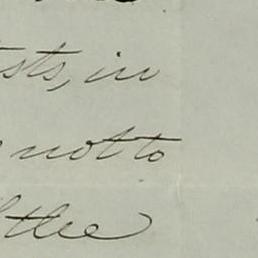 sts, in
not to
the